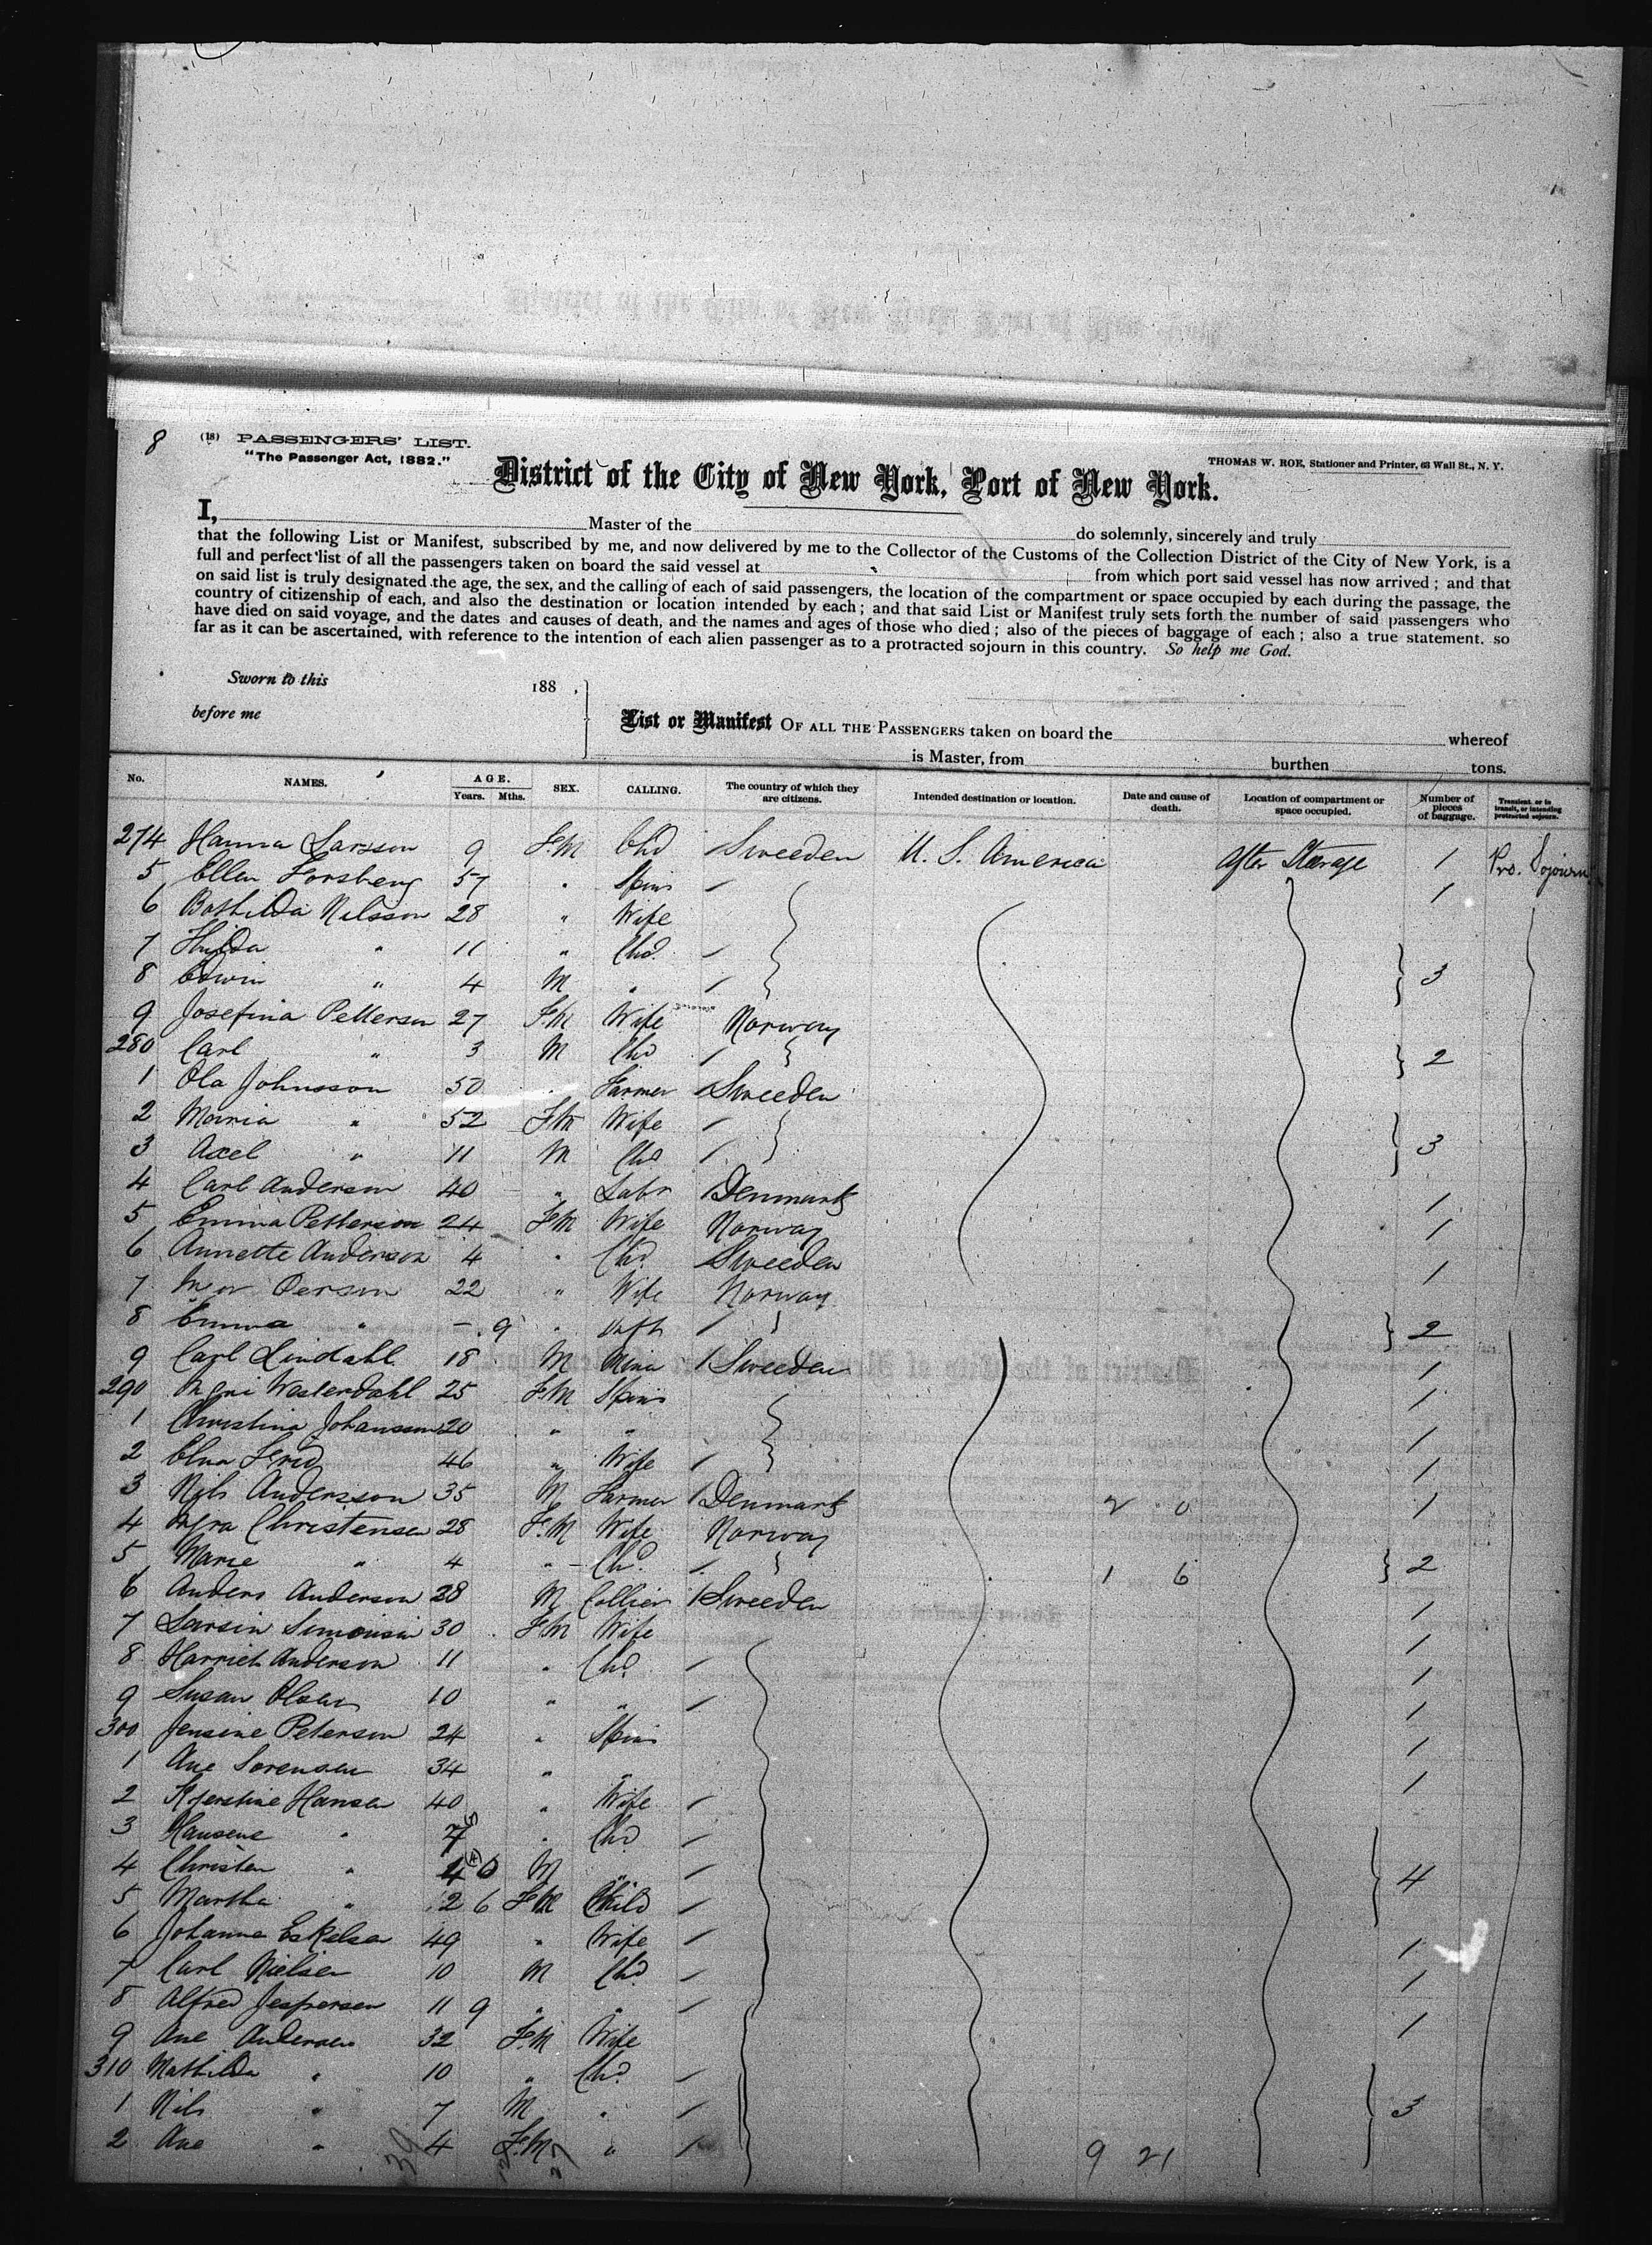 8 (18) PASSENGERS' LIST.
"The Passenger Act, 1882."
THOMAS W. ROE, Stationer and Printer, 63 Wall St., N. Y.
District of the City of New York, Port of New York.
I, Master of the do solemnly, sincerely and truly
that the following List or Manifest, subscribed by me, and now delivered by me to the Collector of the Customs of the Collection District of the City of New York, is a
full and perfect list of all the passengers taken on board the said vessel at from which port said vessel has now arrived; and that
on said list is truly designated the age, the sex, and the calling of each of said passengers, the location of the compartment or space occupied by each during the passage, the
country of citizenship of each, and also the destination or location intended by each; and that said List or Manifest truly sets forth the number of said passengers who
have died on said voyage, and the dates and causes of death, and the names and ages of those who died; also of the pieces of baggage of each; also a true statement, so
far as it can be ascertained, with reference to the intention of each alien passenger as to a protracted sojourn in this country. So help me God.
Sworn to this 188 ,
before me
List or Manifest OF ALL THE PASSENGERS taken on board the whereof
is Master, from burthen tons.
No. NAMES. AGE. Years. Mths. SEX. CALLING. The country of which they are citizens. Intended destination or location. Date and cause of death. Location of compartment or space occupied. Number of pieces of baggage. Transient, or in transit, or intending protracted sojourn.
274 Hanna Larsson 9 F.M Chd Sweeden U. S. America After Steerage 1 Pro. Sojourn
5 Ellen Forsberg 57 " Spins 1
6 Bothilda Nilsson 28 " Wife
7 Hilda " 11 " Chd.
8 Edwin " 4 M " 3
9 Josefina Petterson 27 F.M Wife Norway
280 Carl " 3 M Chd 2
1 Ola Johnsson 50 Farmer Sweeden
2 Maria " 52 F.M Wife
3 Axel " 11 M Chd 3
4 Carl Anderson 40 " Labr Denmark 1
5 Emma Petterson 24 F.M Wife Norway 1
6 Annette Anderson 4 " Chd. Sweeden 1
7 Person 22 " Wife Norway
8 Emma " - 9 " Inft 2
9 Carl Lindahl 18 M Sweeden 1
290 Westerdahl 25 F.M Spins 1
1 Christina Johansson 20 " " 1
2 Elna 46 " Wife 1
3 Nils Andersson 35 M Farmer Denmark 2 0 1
4 Christensen 28 F.M Wife Norway
5 Marie " 4 " Chd. 1 6 2
6 Anders Anderson 28 M Collier Sweeden 1
7 Larsin Simonsin 30 F.M Wife 1
8 Harriet Anderson 11 " Chd. 1
9 Susan Olsen 10 " " 1
300 Jensine Peterson 24 " Spins 1
1 Ane Sorensen 34 " " 1
2 Kjerstine Hansen 40 " Wife
3 Hansene " 7 " Chd
4 Christen " 4 6 M " 4
5 Martha " 2 6 F.M Child
6 Johanne Eskelsen 49 " Wife 1
7 Carl Nielsen 10 M Chd. 1
8 Alfred Jespersen 11 9 " " 1
9 Ane Andersen 32 F.M Wife
310 Mathilda " 10 " Chd.
1 Nils " 7 M " 3
2 Ane " 4 F.M " 9 21
39 27